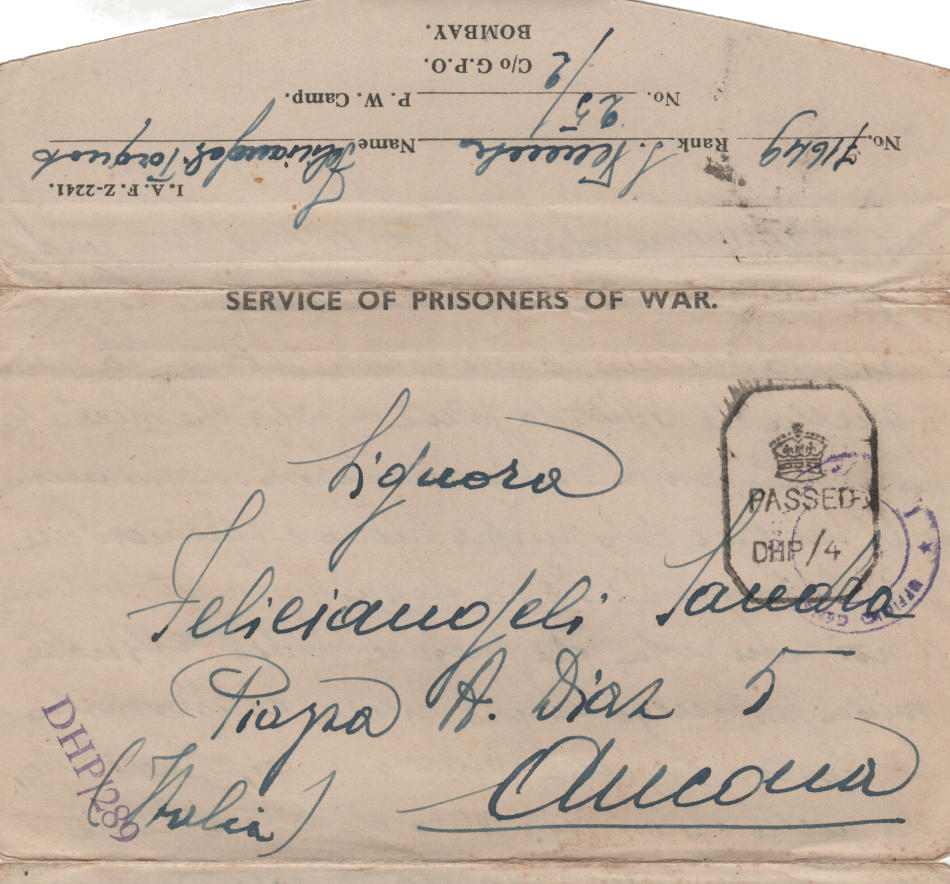 I. A. F. Z-2241.
No. 71649 Rank S. Tenente Name Feliciangeli Torquato
No. 25/2 P. W. Camp.
C/o G.P.O.
BOMBAY.
SERVICE OF PRISONERS OF WAR.
PASSED
DHP/4
Signora
Feliciangeli Sandra
Piazza A. Diaz 5
Ancona
(Italia)
DHP/289